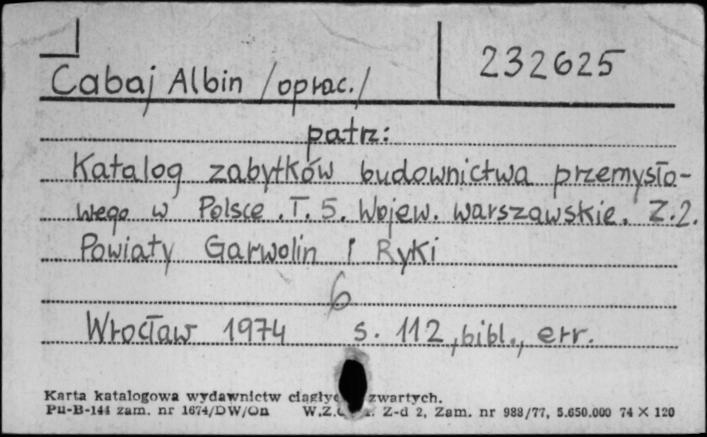 Cabaj Albin /oprac./ 232625
patrz:
Katalog zabytków budownictwa przemysło-
wego w Polsce. T. 5. Wojew. warszawskie. Z.2.
Powiaty Garwolin i Ryki
6
Wrocław 1974 s. 112, bibl., err.
Karta katalogowa wydawnictw zwartych.
Pu-B-144 zam. nr 1674/DW/On W.Z. Z-d 2, Zam. nr 988/77, 5.650.000 74 X 120